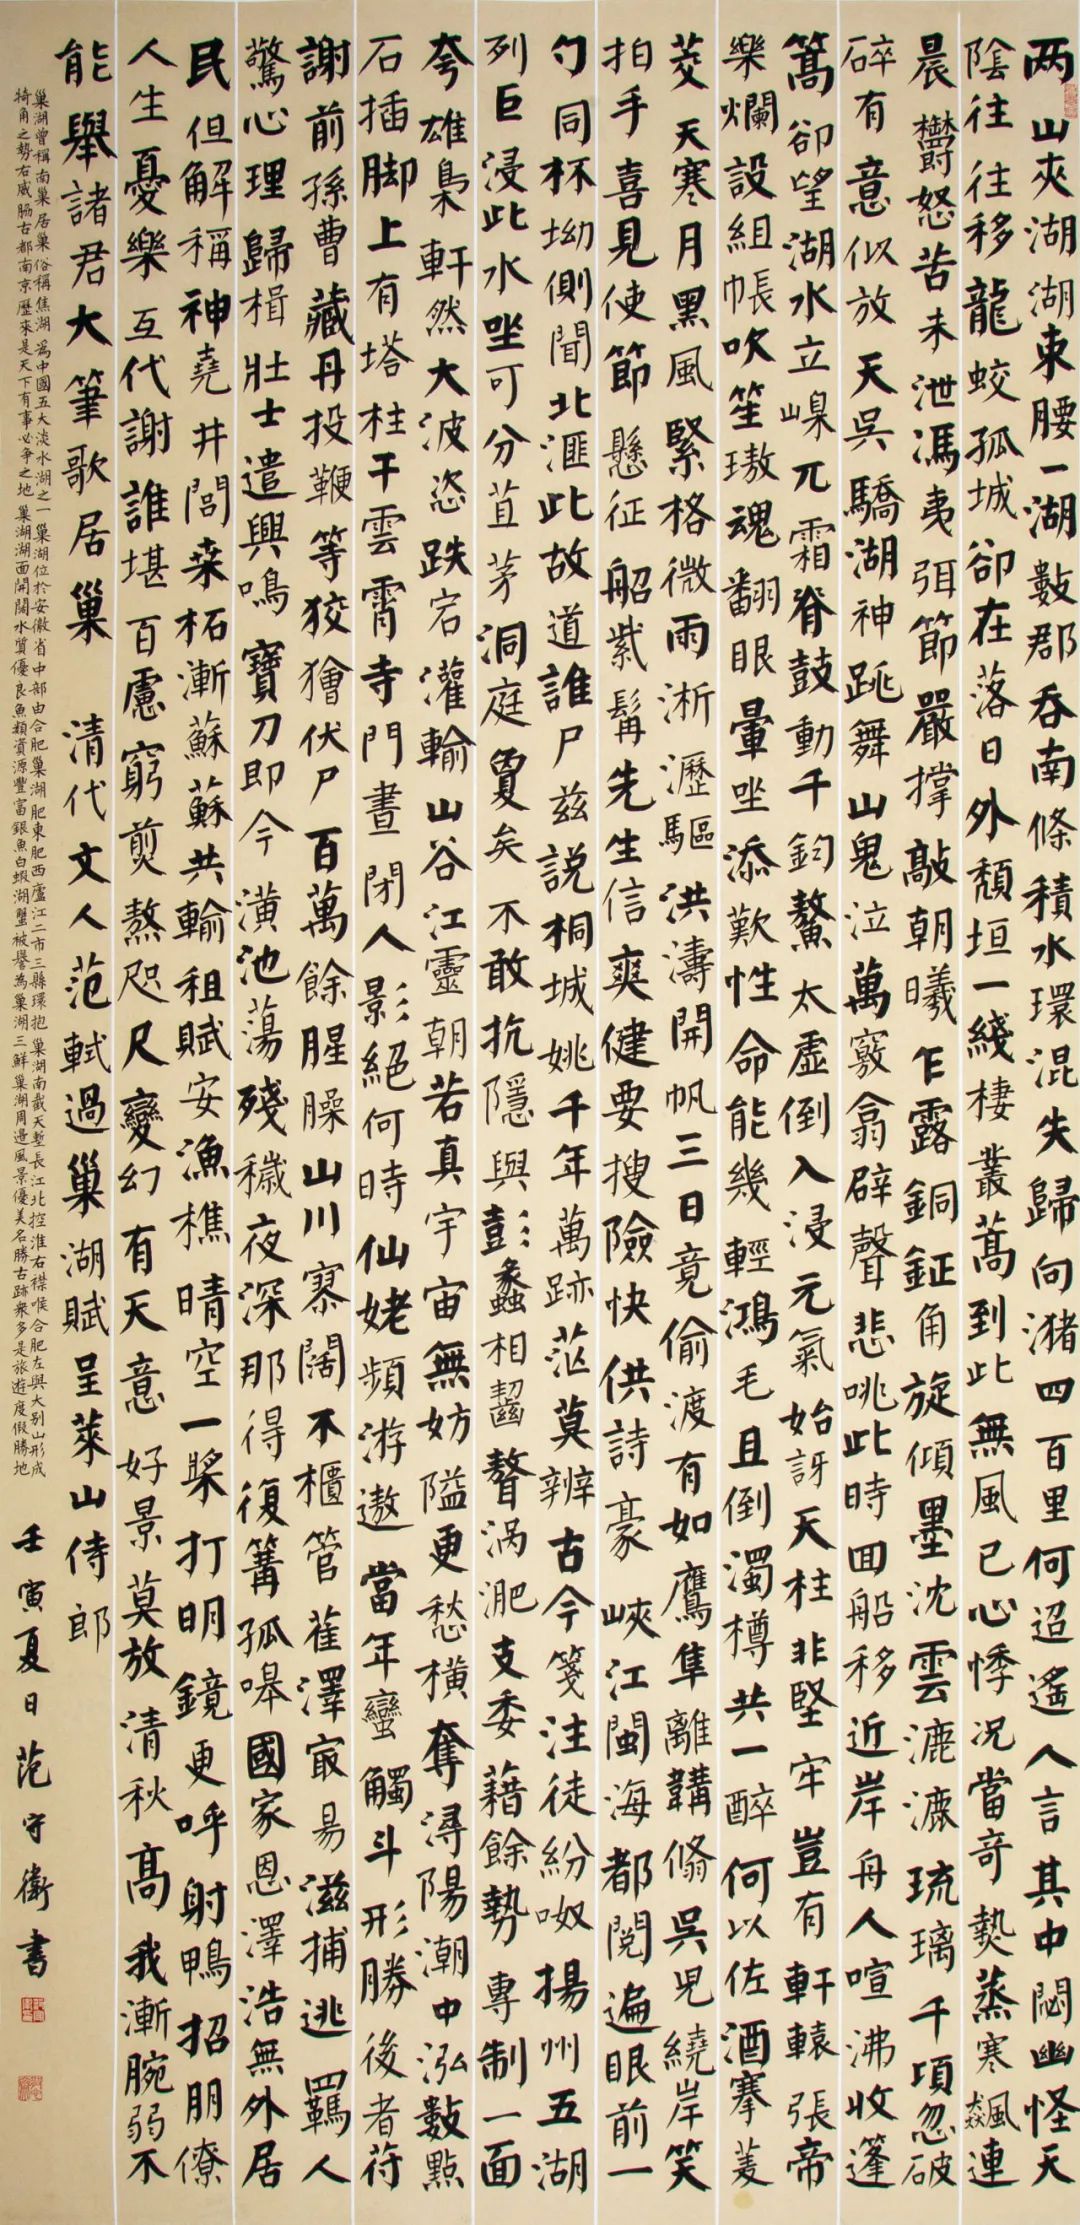 两山夾湖湖束腰一湖數郡吞南條積水環混失歸向瀦四百里何迢遙人言其中閟幽怪天
陰往往移龍蛟孤城卻在落日外頹垣一綫棲叢蒿到此無風已心悸況當奇熱蒸寒飆連
晨欝怒苦未泄馮夷弭節嚴撑敲朝曦乍露銅鉦角旋傾墨沈雲漉漉琉璃千頃忽破
碎有意似放天吳驕湖神跳舞山鬼泣萬竅翕辟聲悲咷此時回船移近岸舟人喧沸收篷
篙卻望湖水立嵲兀霜脊鼓動千鈞鰲太虛倒入浸元氣始訝天柱非堅牢豈有軒轅張帝
樂爛設組帳吹笙璈魂翻眼暈坐添歎性命能幾輕鴻毛且倒濁樽共一醉何以佐酒搴菱
芰天寒月黑風緊格微雨淅瀝驅洪濤開帆三日竟偷渡有如鷹隼離韝翛吳兒繞岸笑
拍手喜見使節懸征船紫髯先生信爽健要搜險快供詩豪峽江閩海都閱遍眼前一
勺同杯坳側聞北滙此故道誰尸兹説桐城姚千年萬跡茫莫辨古今箋注徒紛呶揚州五湖
列巨浸此水坐可分苴茅洞庭敻矣不敢抗隱與彭蠡相齧聱渦淝支委藉餘勢專制一面
夸雄梟軒然大波恣跌宕灌輸山谷江靈朝若真宇宙無妨隘更愁橫奪潯陽潮中泓數點
石插脚上有塔柱干雲霄寺門晝閉人影絕何時仙姥頻游遨當年蠻觸斗形勝後者苻
謝前孫曹藏丹投鞭等狡獪伏尸百萬餘腥臊山川寥闊不櫃管萑澤冣易滋捕逃羈人
驚心理歸楫壯士遣興鳴寶刀即今潢池蕩殘穢夜深那得復篝孤嗥國家恩澤浩無外居
民但解稱神堯井閭桒柘漸蘇蘇共輸租賦安漁樵晴空一槳打明鏡更呼射鴨招朋僚
人生憂樂互代謝誰堪百慮窮煎熬咫尺變幻有天意好景莫放清秋高我漸腕弱不
能舉諸君大筆歌居巢 清代文人范軾過巢湖賦呈萊山侍郎
巢湖曾稱南巢居巢俗稱焦湖為中國五大淡水湖之一巢湖位於安徽省中部由合肥巢湖肥東肥西廬江二市三縣環抱巢湖南截天塹長江北控淮右襟喉合肥左與大别山形成
犄角之勢右威脇古都南京歷來是天下有事必争之地巢湖湖面開闊水質優良魚類資源豐富銀魚白蝦湖蟹被譽為巢湖三鮮巢湖周邊風景優美名勝古跡衆多是旅遊度假勝地
壬寅夏日范守衛書